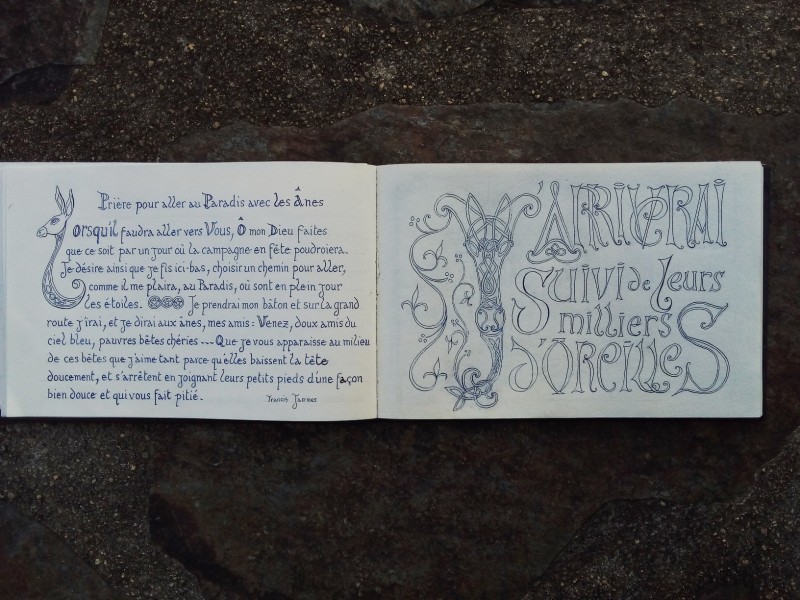 Prière pour aller au Paradis avec les ânes
Lorsqu'il faudra aller vers Vous, Ô mon Dieu faites
que ce soit par un jour où la campagne en fête poudroiera.
Je désire ainsi que je fis ici-bas, choisir un chemin pour aller,
comme il me plaira, au Paradis, où sont en plein jour
les étoiles. Je prendrai mon bâton et sur la grand
route j'irai, et je dirai aux ânes, mes amis: Venez, doux amis du
ciel bleu, pauvres bêtes chéries --- Que je vous apparaisse au milieu
de ces bêtes que j'aime tant parce qu'elles baissent la tête
doucement, et s'arrêtent en joignant leurs petits pieds d'une façon
bien douce et qui vous fait pitié.
Francis Jammes
Y'ARRIVERAI
Suivi de leurs
milliers
d'OreilleS